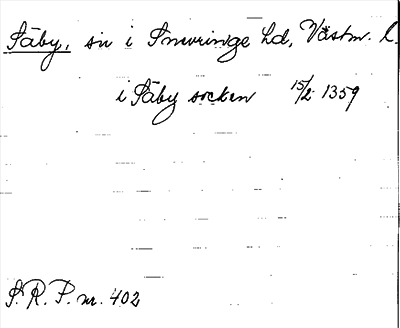 Säby, sn i Snevringe hd, Västm. l.
i Säby socken 15/2 1359
S. R. P. nr. 402